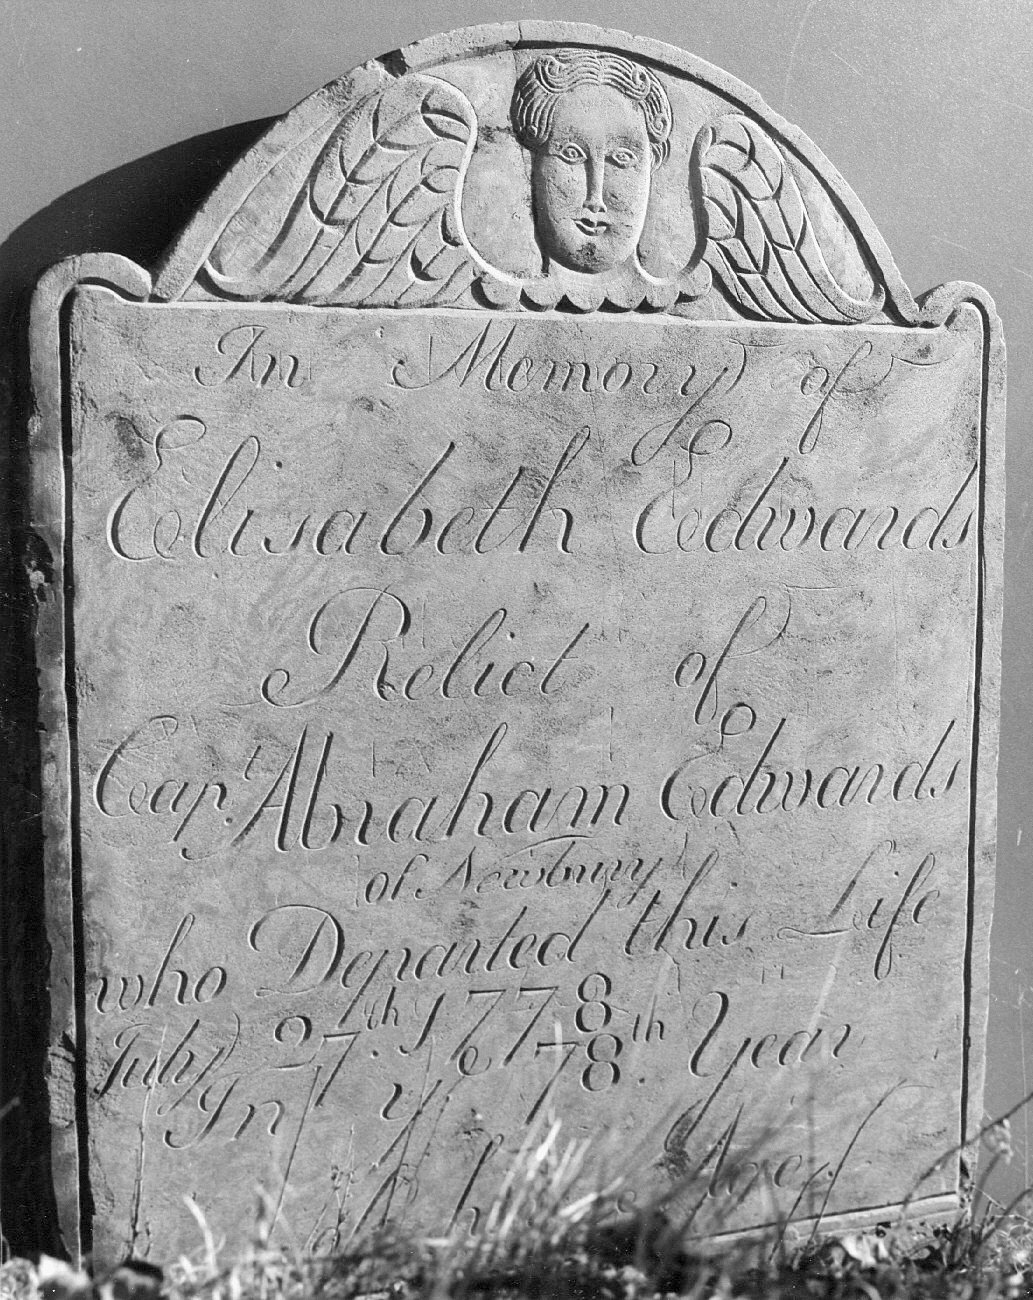 In Memory of
Elisabeth Eedwards
Relict of
Capt Abraham Eedwards
of Newbury
who Departed this Life
July 27th. 1778
In ye 78th Year
of her Age